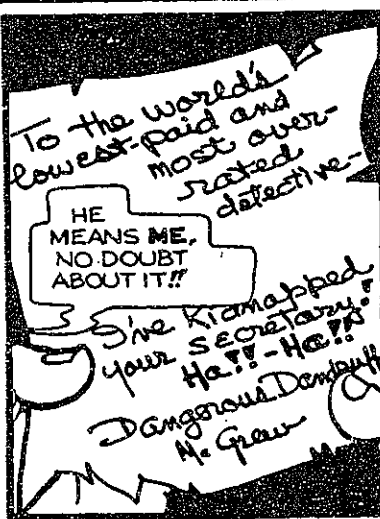 To the world's
lowest-paid and
most over-
rated
detective-
HE
MEANS ME,
NO DOUBT
ABOUT IT!!
I've Kidnapped
your secretary!
Ha!!-Ha!!
Dangerous Dan
Mc Grew